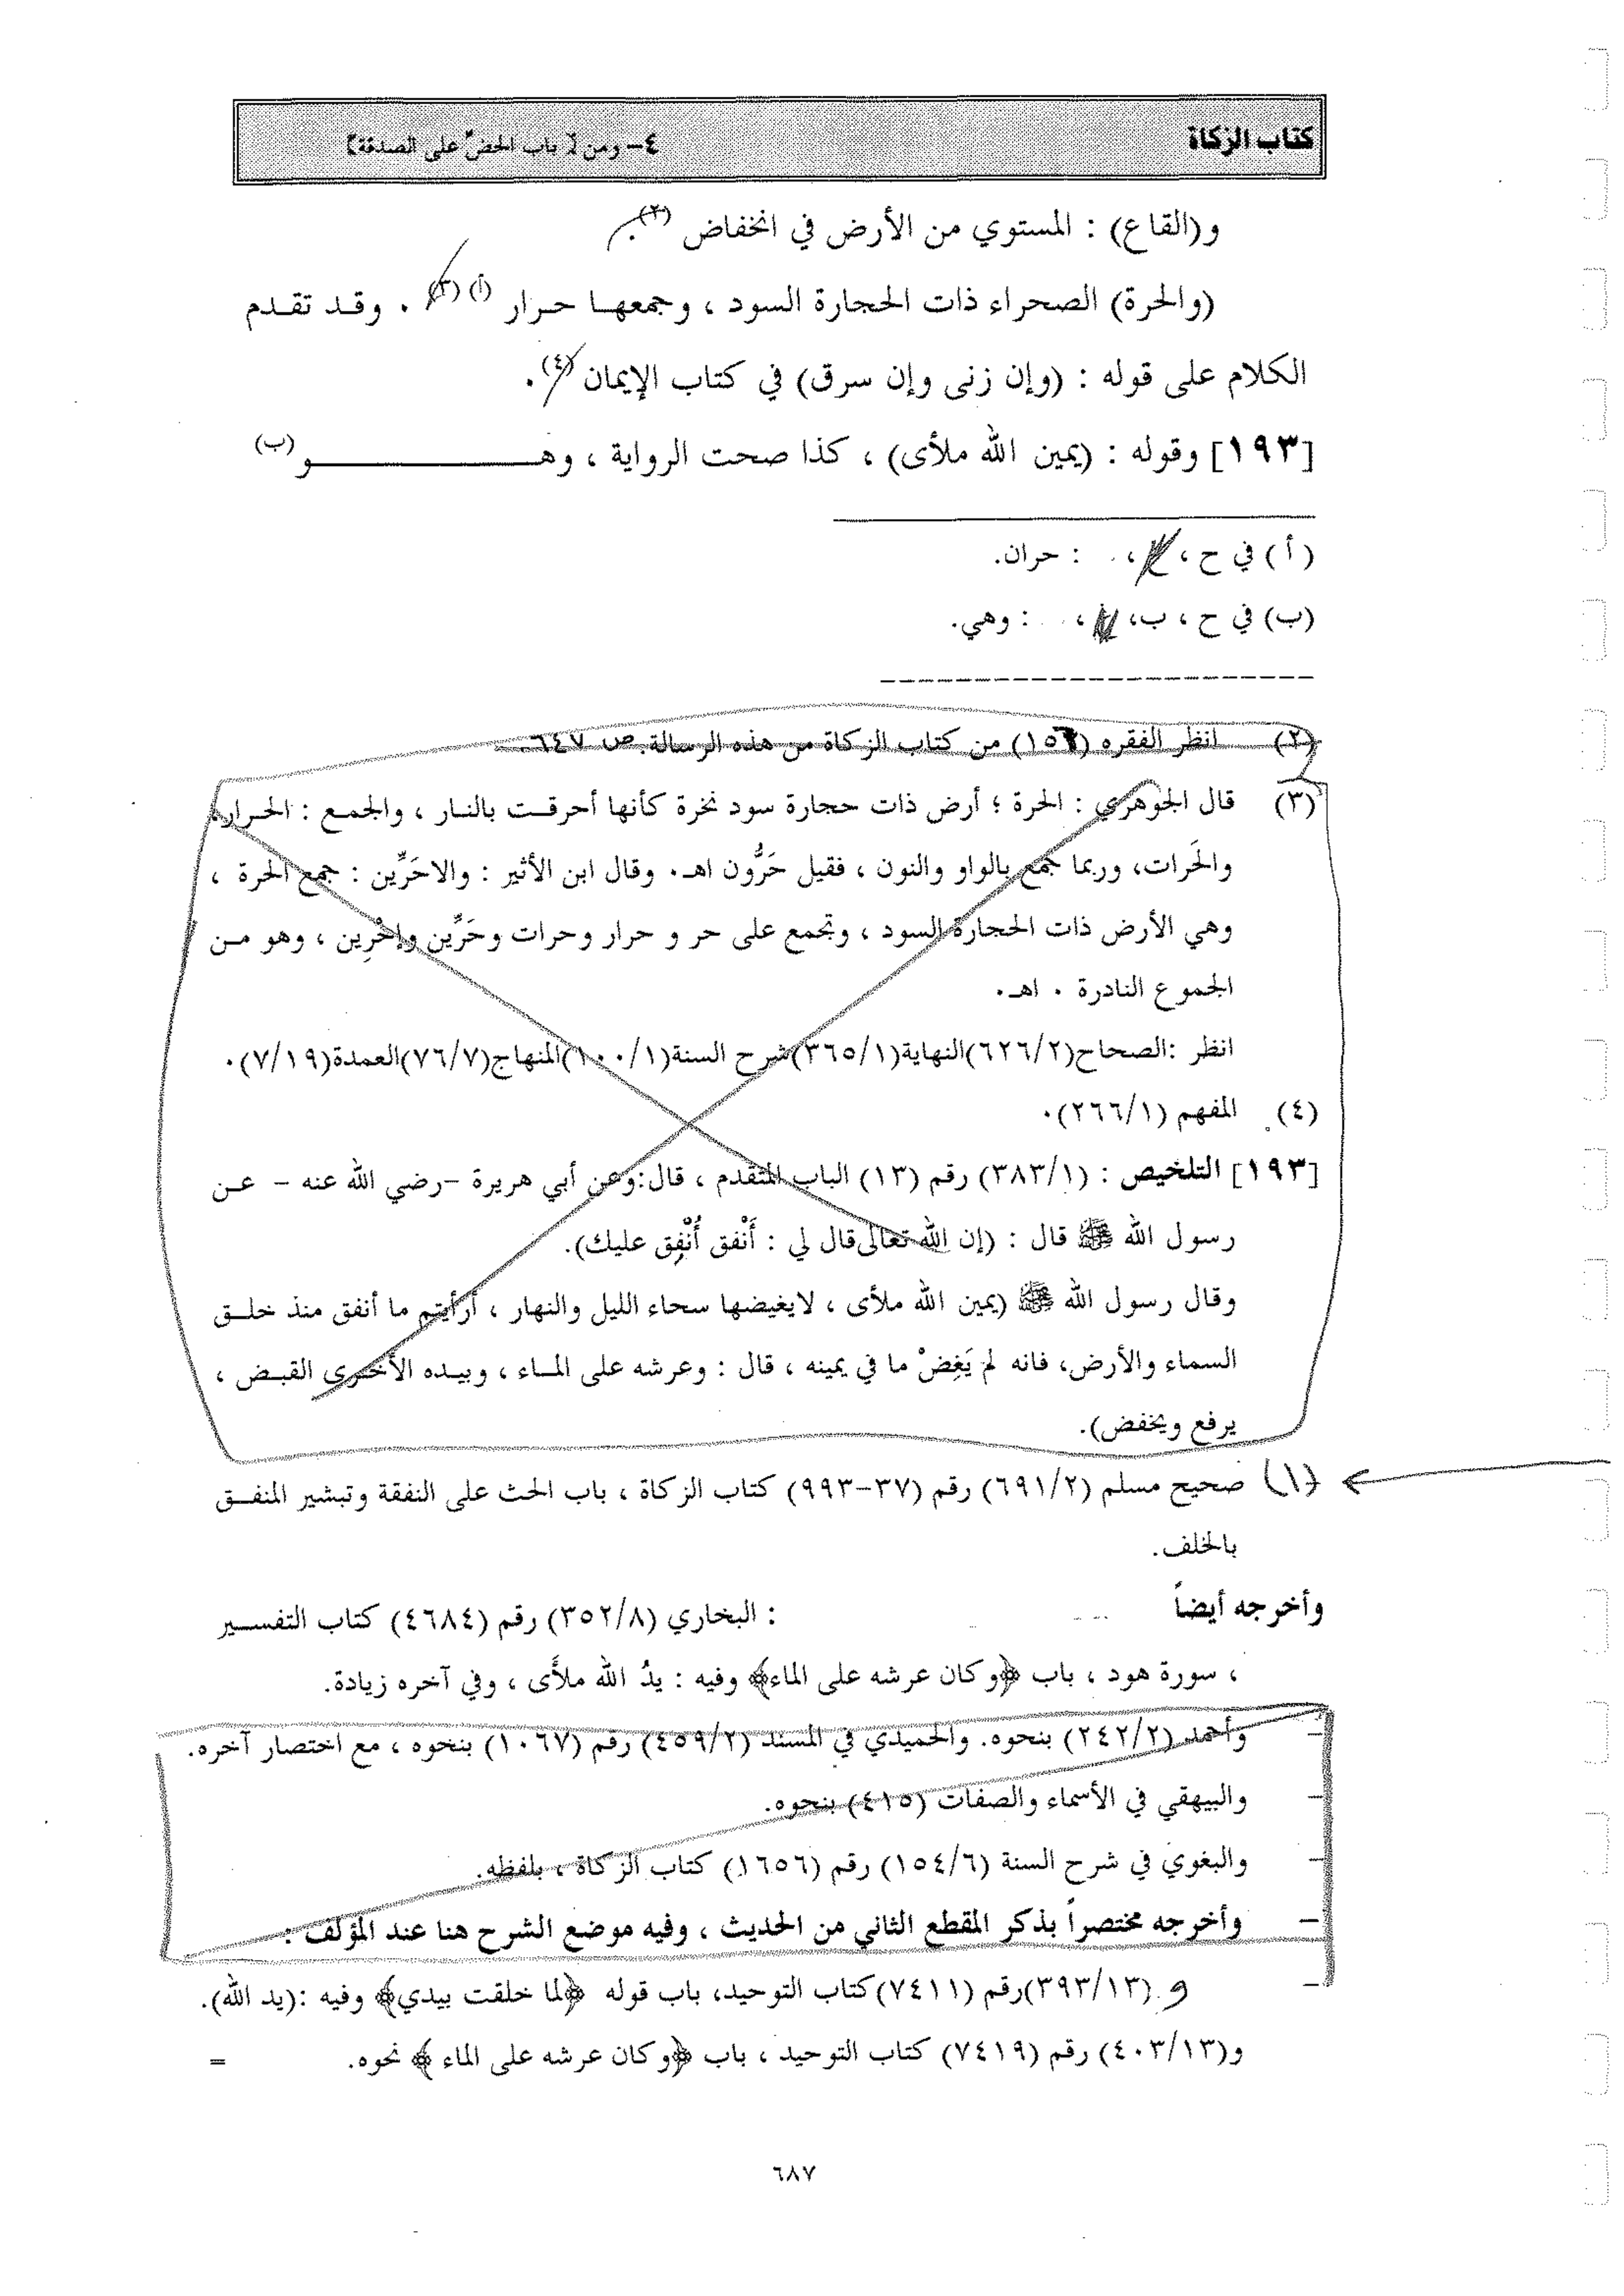 كتاب الزكاة
٤- ومن [ باب الحضّ على الصدقة]
و(القاع) : المستوي من الأرض في انخفاض (٢).
(والحرة) الصحراء ذات الحجارة السود ، وجمعها حرار (أ) (٣) . وقد تقدم
الكلام على قوله : (وإن زنى وإن سرق) في كتاب الإيمان (٤).
[١٩٣] وقوله : (يمين الله ملأى) ، كذا صحت الرواية ، وهـــو (ب)
(أ) في ح ، ، : حران.
(ب) في ح ، ب، ، : وهي.
(٢) انظر الفقره (١٥٦) من كتاب الزكاة من هذه الرسالة. ص ٦٤٧.
(٣) قال الجوهري : الحرة ؛ أرض ذات حجارة سود نخرة كأنها أحرقت بالنار ، والجمع : الحرار،
والحَرات، وربما جمع بالواو والنون ، فقيل حَرُّون اهـ. وقال ابن الأثير : والاحَرِّين : جمع الحرة ،
وهي الأرض ذات الحجارة السود ، وتجمع على حر و حرار وحرات وحَرِّين وإحْرِين ، وهو من
الجموع النادرة . اهـ.
انظر :الصحاح(٦٢٦/٢)النهاية(٣٦٥/١)شرح السنة(١٠٠/١)المنهاج(٧٦/٧)العمدة(٧/١٩).
(٤) المفهم (٢٦٦/١).
[١٩٣] التلخيص : (٣٨٣/١) رقم (١٣) الباب المتقدم ، قال:وعن أبي هريرة -رضي الله عنه - عن
رسول الله ﷺ قال : (إن الله تعالى قال لي : أَنْفق أُنْفِق عليك).
وقال رسول الله ﷺ (يمين الله ملأى ، لايغيضها سحاء الليل والنهار ، أرأيتم ما أنفق منذ خلق
السماء والأرض، فانه لم يَغِضْ ما في يمينه ، قال : وعرشه على الماء ، وبيده الأخرى القبض ،
يرفع ويخفض).
(١) صحيح مسلم (٦٩١/٢) رقم (٣٧-٩٩٣) كتاب الزكاة ، باب الحث على النفقة وتبشير المنفق
بالخلف.
وأخرجه أيضاً : البخاري (٣٥٢/٨) رقم (٤٦٨٤) كتاب التفسير
، سورة هود ، باب ﴿وكان عرشه على الماء﴾ وفيه : يدُ الله ملأى ، وفي آخره زيادة.
- وأحمد (٢٤٢/٢) بنحوه. والحميدي في المسند (٤٥٩/٢) رقم (١٠٦٧) بنحوه ، مع اختصار آخره.
- والبيهقي في الأسماء والصفات (٤١٥) بنحوه.
- والبغوي في شرح السنة (١٥٤/٦) رقم (١٦٥٦) كتاب الزكاة ، بلفظه.
- وأخرجه مختصراً بذكر المقطع الثاني من الحديث ، وفيه موضع الشرح هنا عند المؤلف :
- و (٣٩٣/١٣)رقم (٧٤١١)كتاب التوحيد، باب قوله ﴿لما خلقت بيدي﴾ وفيه :(يد الله).
و(٤٠٣/١٣) رقم (٧٤١٩) كتاب التوحيد ، باب ﴿وكان عرشه على الماء ﴾ نحوه. =
٦٨٧